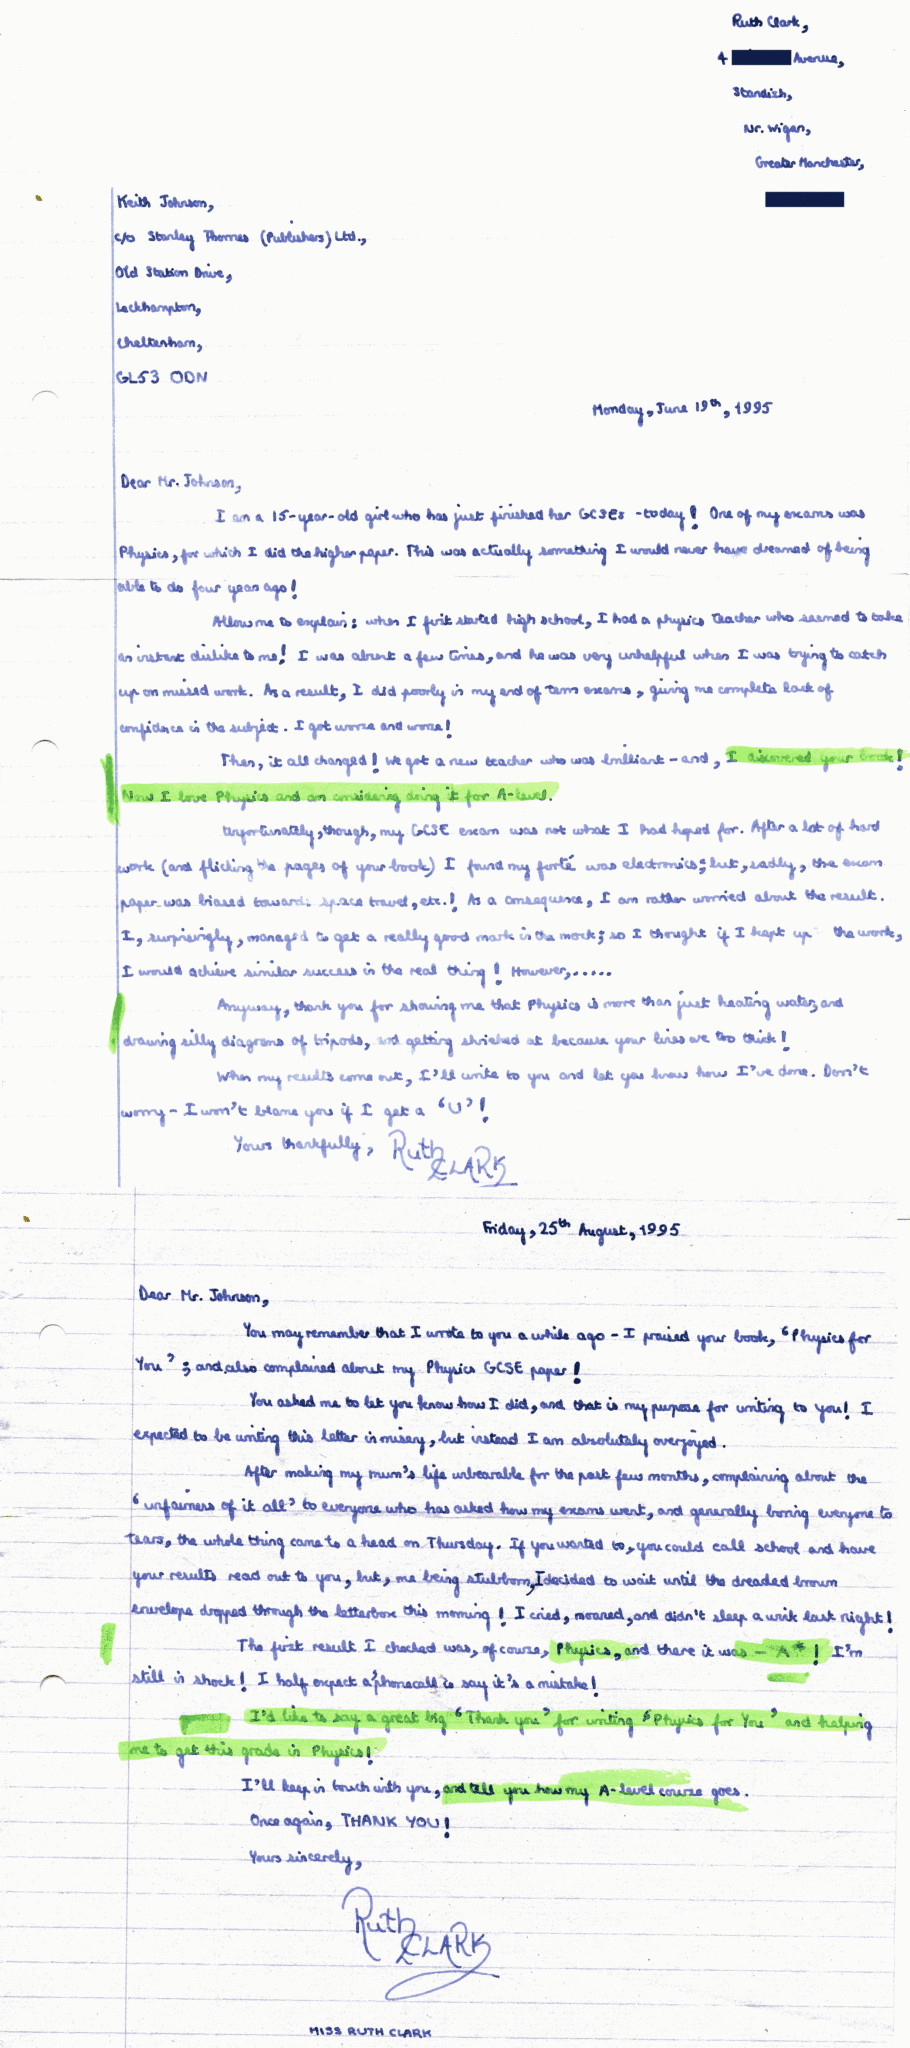 Ruth Clark,
4 Avenue,
Standish,
Nr. Wigan,
Greater Manchester,
Keith Johnson,
c/o Stanley Thornes (Publishers) Ltd.,
Old Station Drive,
Leckhampton,
Cheltenham,
GL53 0DN
Monday, June 19th, 1995
Dear Mr. Johnson,
I am a 15-year-old girl who has just finished her GCSEs - today! One of my exams was
Physics, for which I did the higher paper. This was actually something I would never have dreamed of being
able to do four years ago!
Allow me to explain: when I first started high school, I had a physics teacher who seemed to take
an instant dislike to me! I was absent a few times, and he was very unhelpful when I was trying to catch
up on missed work. As a result, I did poorly in my end of term exams, giving me complete lack of
confidence in the subject. I got worse and worse!
Then, it all changed! We got a new teacher who was brilliant - and, I discovered your book!
Now I love Physics and am considering doing it for A-level.
Unfortunately, though, my GCSE exam was not what I had hoped for. After a lot of hard
work (and flicking the pages of your book) I found my forté was electronics; but, sadly, the exam
paper was biased towards space travel, etc.! As a consequence, I am rather worried about the result.
I, surprisingly, managed to get a really good mark in the mock; so I thought if I kept up the work,
I would achieve similar success in the real thing! However,.....
Anyway, thank you for showing me that Physics is more than just heating water, and
drawing silly diagrams of tripods, and getting shrieked at because your lines are too thick!
When my results come out, I'll write to you and let you know how I've done. Don't
worry - I won't blame you if I get a 'U'!
Yours thankfully, Ruth
CLARK
Friday, 25th August, 1995
Dear Mr. Johnson,
You may remember that I wrote to you a while ago - I praised your book, 'Physics for
You'; and also complained about my Physics GCSE paper!
You asked me to let you know how I did, and that is my purpose for writing to you! I
expected to be writing this letter in misery, but instead I am absolutely overjoyed.
After making my mum's life unbearable for the past few months, complaining about the
'unfairness of it all' to everyone who has asked how my exams went, and generally boring everyone to
tears, the whole thing came to a head on Thursday. If you wanted to, you could call school and have
your results read out to you, but, me being stubborn, I decided to wait until the dreaded brown
envelope dropped through the letterbox this morning! I cried, moaned, and didn't sleep a wink last night!
The first result I checked was, of course, Physics, and there it was - A*! I'm
still in shock! I half expect a phonecall to say it's a mistake!
I'd like to say a great big 'Thank you' for writing 'Physics for You' and helping
me to get this grade in Physics!
I'll keep in touch with you, and tell you how my A-level course goes.
Once again, THANK YOU!
Yours sincerely,
Ruth
CLARK
MISS RUTH CLARK